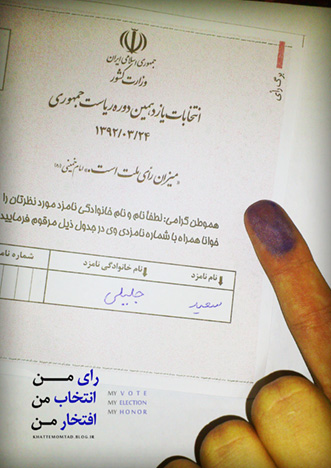 برگ رأی
جمهوری اسلامی ایران
وزارت کشور
انتخابات یازدهمین دوره ریاست جمهوری
۱۳۹۲/۰۳/۲۴
«میزان رأی ملت است» امام خمینی (ره)
هموطن گرامی: لطفاً نام و نام خانوادگی نامزد مورد نظرتان را
خوانا همراه با شماره نامزدی وی در جدول ذیل مرقوم فرمایید
نام نامزد نام خانوادگی نامزد شماره نامزد
سعید جلیلی
رای مــن MY VOTE
انتخاب من MY ELECTION
افتخار من MY HONOR
KHATTEMOMTAD.BLOG.IR